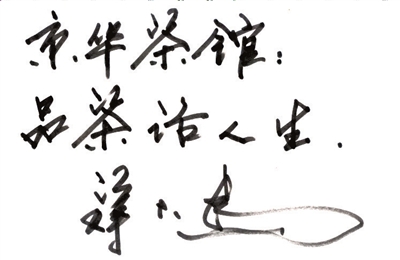 京华茶馆：
品茶话人生.